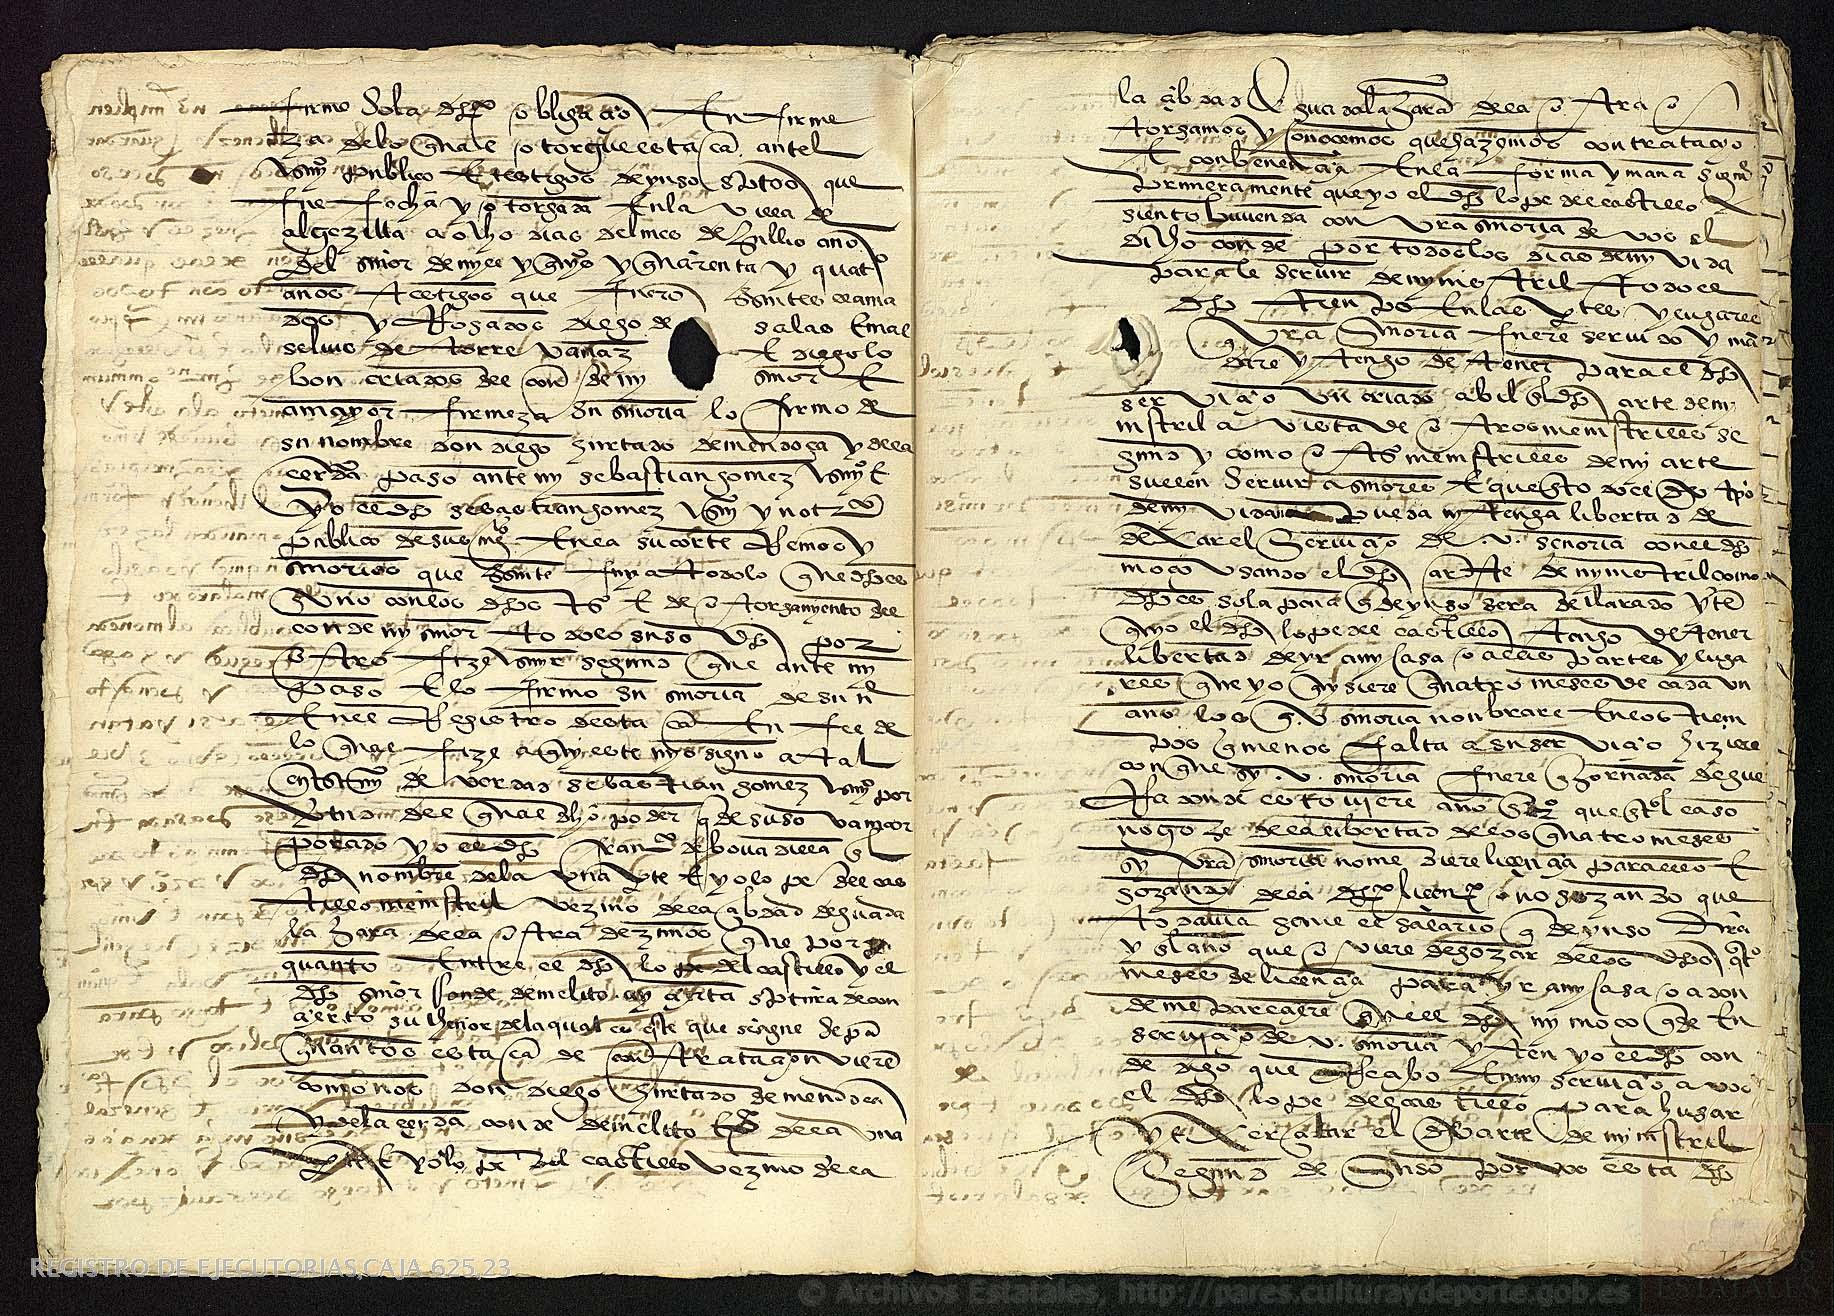 firmo so la dha obligaçio En firme
za de lo quale otorgue esta ca antel
scriuo publico E testigos de yuso sptos que
fue fecha y otorgada En la villa de
algezilla a ocho dias del mes de Jullio año
del señor de myll y quios y quarenta y quatro
años testigos que fuero psentes llama
dos y Rogados diego de salas E mae
se luis de torre vanaz E diego lo
bon criados del conde my señor E
a mayor firmeza su señoria lo firmo de
su nombre don diego hurtado de mendoça y de la
cerda paso ante my sebastian gomez scriuo E
yo el dho sebastian gomez scriuo y notro
publico de sus mgs En la su corte Reynos y
señorios que psente fuy a todo lo que dho es
En uno con los dhos tos E de otorgamyento del
conde my señor todo lo suso dho por
otro fize screuir segund que ante my
paso E lo firmo su señoria de su ne
En el Registro desta ca En fee de
lo qual fize aquy este myo signo a tal
En testimo de verdad sebastian gomez scriuo por
virtud del qual dho poder q de suso va yncor
porado yo el dho franco de bovadilla En
dho nombre de la vna pte E yo lope del cas
tillo menistril vezino de la cibdad de guada
lajara de la otra dezimos que por
quanto Entre el dho lope del castillo y el
dho señor conde de melito ay çierta sptura de con
çierto su thenor de la qual es este que se sigue sepa
quantos esta ca de contrataçion vieren
como nos don diego hurtado de mendoça
y de la cerda conde de melito de la vna
pte E yo lope del castillo vezino de la
la cibdad de guadalajara de la otra
otorgamos y conoçemos que hazemos contrataçio
E conbenençia En la forma y mana siguie
primeramente que yo el dho lope del castillo
siento bivienda con vra señoria de vos el
dicho conde por todos los dias de my vida
para le servir de mynistril todo el
dho tienpo En las ptes y lugares
q vra señoria fuere servido y man
dare y tengo de tener para el dho
serviçio vn criado abil En el dho arte de my
nistril a vista de otros menistriles se
gund y como otros menistriles de my arte
suelen servir a señores E que En todo el dho tpo
de my vida pueda ny tenga libertad de
dexar el serviçio de v. señoria con el dho
moço vsando el dho arte de mynistril como
dho es so la pena q de yuso sera declarado yten
que yo el dho lope del castillo tengo de tener
libertad de yr a my casa o a las partes y luga
res que yo quysiere quatro meses de cada vn
año los q. v. señoria nonbrare En los tiem
pos q menos falta a su serviçio hiziere
con que sy v. señoria fuere En jornada de gue
Ra donde estoviere año que En tal caso
no goze de la libertad de los quatro meses
sy vra señoria no me diere liçençia para ello E
gozando de la dha liçençia o no gozando que
todavia gane el salario q de yuso dira
y En el año que oviere de gozar de los dhos qtro
meses de liçençia para yr a my casa o a don
de me paresçiere que el dho my moço qde En
serviçio de v. señoria yten yo el dho con
de digo que Resçibo En my serviçio a vos
el dho lope del castillo para husar
y Exerçitar el dho arte de mynistril
segund de suso por vos esta dho
REGISTRO DE EJECUTORIAS,CAJA 625,23
© Archivos Estatales, http://pares.culturaydeporte.gob.es